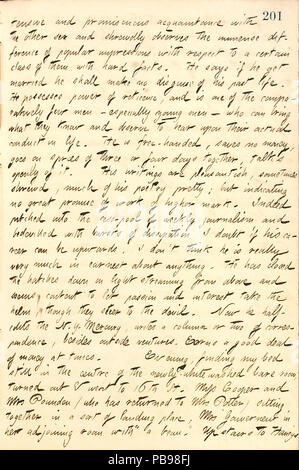 201
tensive and promiscuous acquaintance with
the other sex and shrewdly observes the immense dif-
ference of popular impressions with respect to a certain
class of them with hard facts. He says if he get
married he shall make no disguise of his past life.
He possesses power of reticence, and is one of the compa-
ratively few men — especially young men — who can bring
what they know and observe to bear upon their actual
conduct in life. He is free-handed, saves no money,
goes on sprees of three or four days together, talks
openly of it. His writings are pleasantish, sometimes
shrewd, much of his poetry pretty; but indicating
no great promise of work of higher mark. Indeed
pitched into the cess-pool of weekly journalism and
bedevilled with bursts of dissipation, I doubt if his ca-
reer can be upwards. I don't think he is really
very much in earnest about anything. He has closed
the hatches down on light streaming from above and
seems content to let passion and interest take the
helm, though they steer to the devil. Now he half-
edits the N. Y. Mercury, writes a column or two of corres-
pondence, besides outside ventures. Earns a good deal
of money at times. Evening, finding my bed
still in the centre of the newly white-washed bare room
turned out & went to 16th St. Miss Cooper and
Mrs. Pounden (who has returned to Mrs Potter) sitting
together in a sort of landing place, Mrs Gouverneur in
her adjoining room with "a beau." Up stairs to
alamy
Image ID: PB98FJ
www.alamy.com